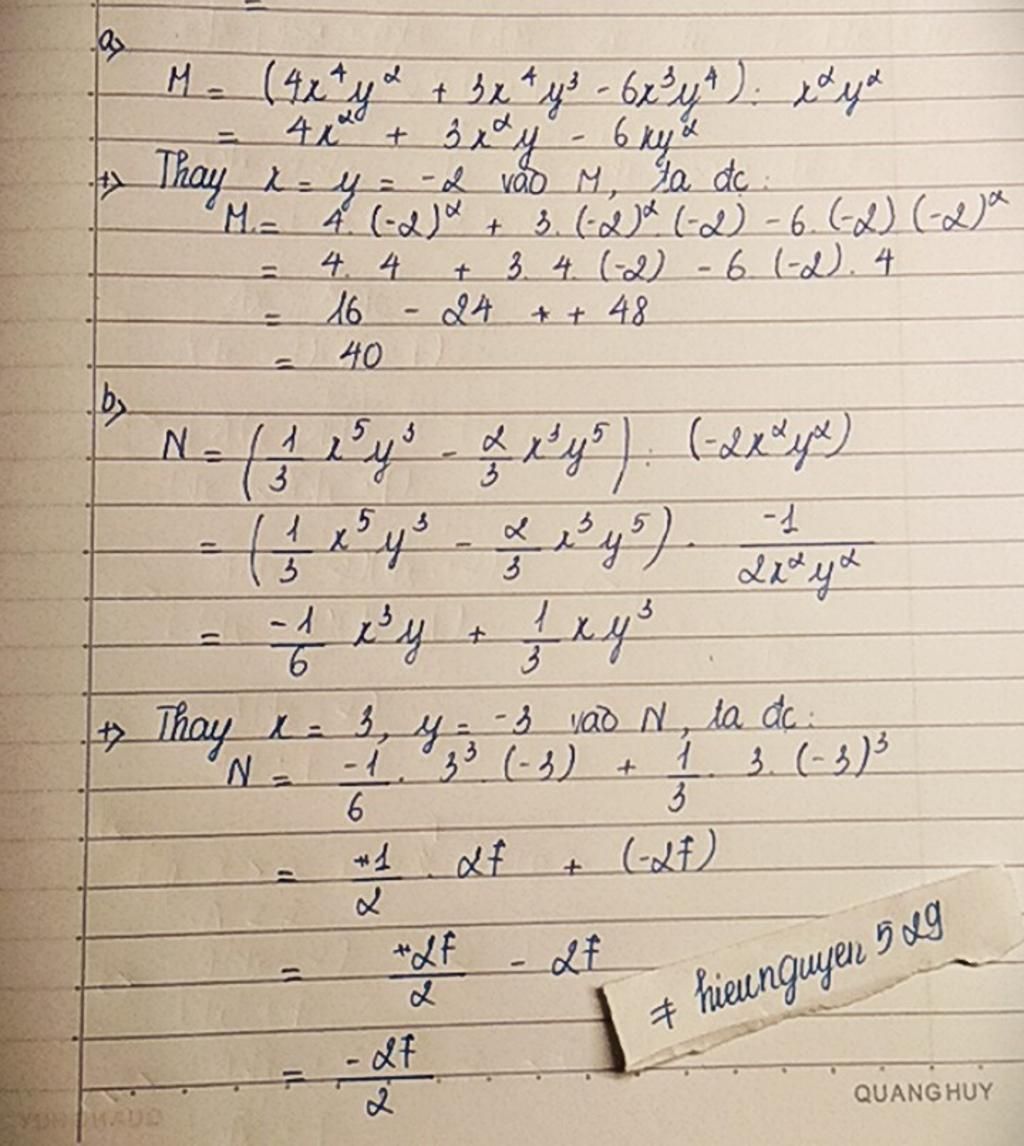 a>
M = (4x⁴y² + 3x⁴y³ - 6x³y⁴) : x²y²
= 4x² + 3x²y - 6xy²
+> Thay x = y = -2 vào M, ta đc :
M = 4. (-2)² + 3. (-2)². (-2) - 6. (-2) (-2)²
= 4. 4 + 3. 4. (-2) - 6. (-2). 4
= 16 - 24 + + 48
= 40
b>
N = (1/3 x⁵y³ - 2/3 x³y⁵) : (-2x²y²)
= (1/3 x⁵y³ - 2/3 x³y⁵) . -1/2x²y²
= -1/6 x³y + 1/3 xy³
+> Thay x = 3, y = -3 vào N, ta đc :
N = -1/6 . 3³ (-3) + 1/3 . 3. (-3)³
= +1/2 . 27 + (-27)
= +27/2 - 27
= -27/2
# hieunguyen 529
QUANG HUY